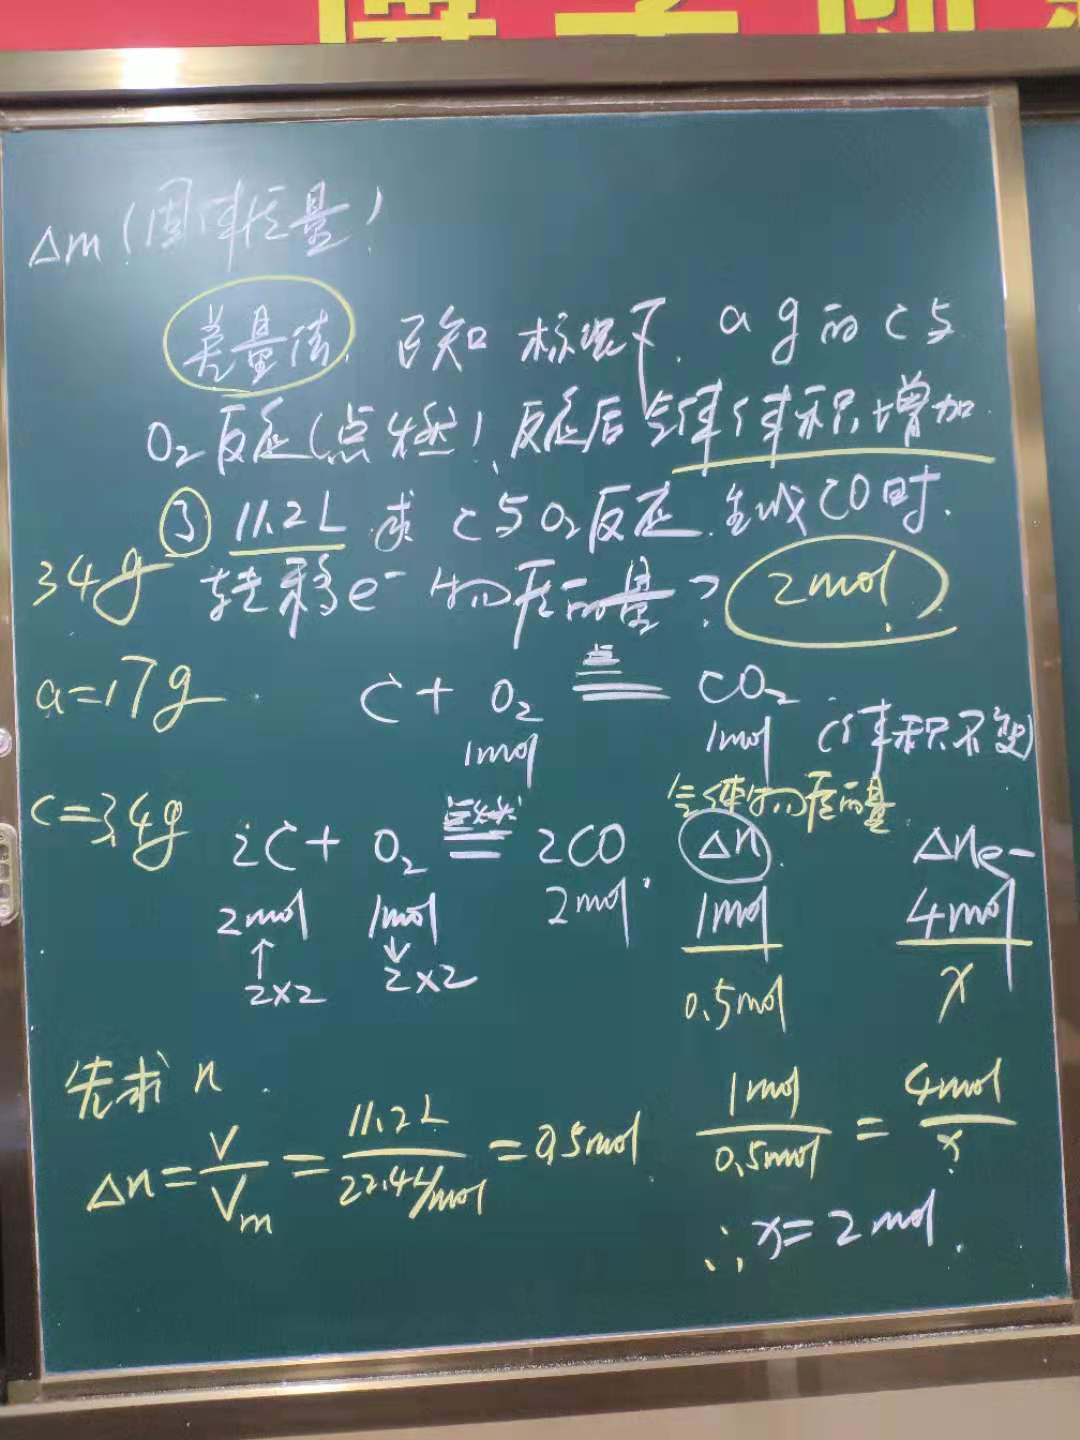 Δm（固体质量）
差量法. 已知 标况下. a g 的 C 与
O₂ 反应（点燃）, 反应后气体体积增加
了 11.2L 求 C 与 O₂ 反应 生成 CO 时.
34g
转移 e⁻ 物质的量? 2mol
a=17g
C + O₂ 点燃 CO₂
1mol 1mol (体积不变)
气体物质的量
C=3.4g
2C + O₂ 点燃 2CO Δn Δne-
2mol 1mol 2mol 1mol 4mol
↑ ↓
2×2 2×2 0.5mol x
先求 n
Δn = V/Vm = 11.2L/22.4L/mol = 0.5mol
1mol/0.5mol = 4mol/x
∴ x = 2mol.